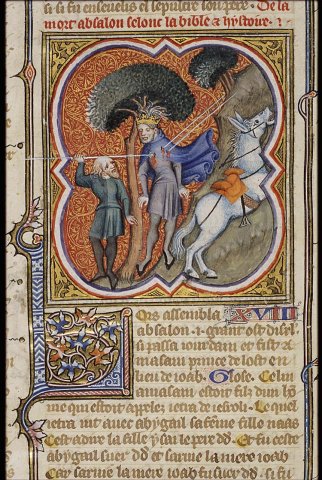 si fu enseuelis el sepulcre son pere. De la
mort absalon selonc la bible & hystoire.
Ors assembla XVIII
absalon . grant ost disrl
si passa iourdain et fist a
masam prince de lost en
lieu de ioab. Glose. Celui
amasam estoit filz dun ho
me qui estoit apelez ietra de iesrl. Le quel
ietra vint auec abygail sa feme fille naas
Cest adire la fille ysai le pere dd. Et fu ceste
abygail suer dd et saruie la mere ioab
Car saruie la mere ioab fu suer dd. si fu